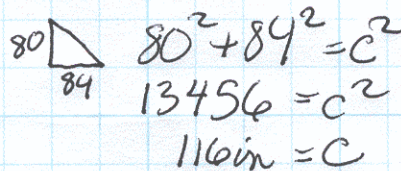 80
84
80²+84²=c²
13456=c²
116in=C